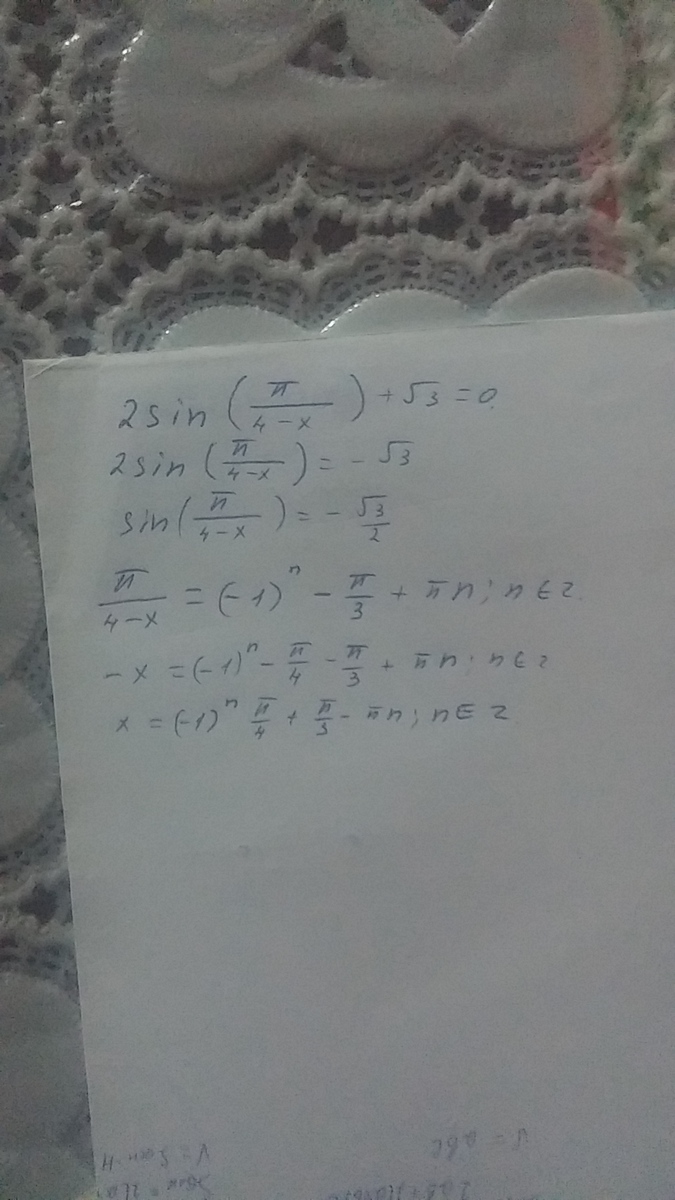 2sin(π/(4-x)) + √3 = 0.
2sin(π/(4-x)) = -√3
sin(π/(4-x)) = -√3/2
π/(4-x) = (-1)^n - π/3 + πn; n ∈ z.
-x = (-1)^n - π/4 - π/3 + πn; n ∈ z
x = (-1)^n π/4 + π/3 - πn; n ∈ z